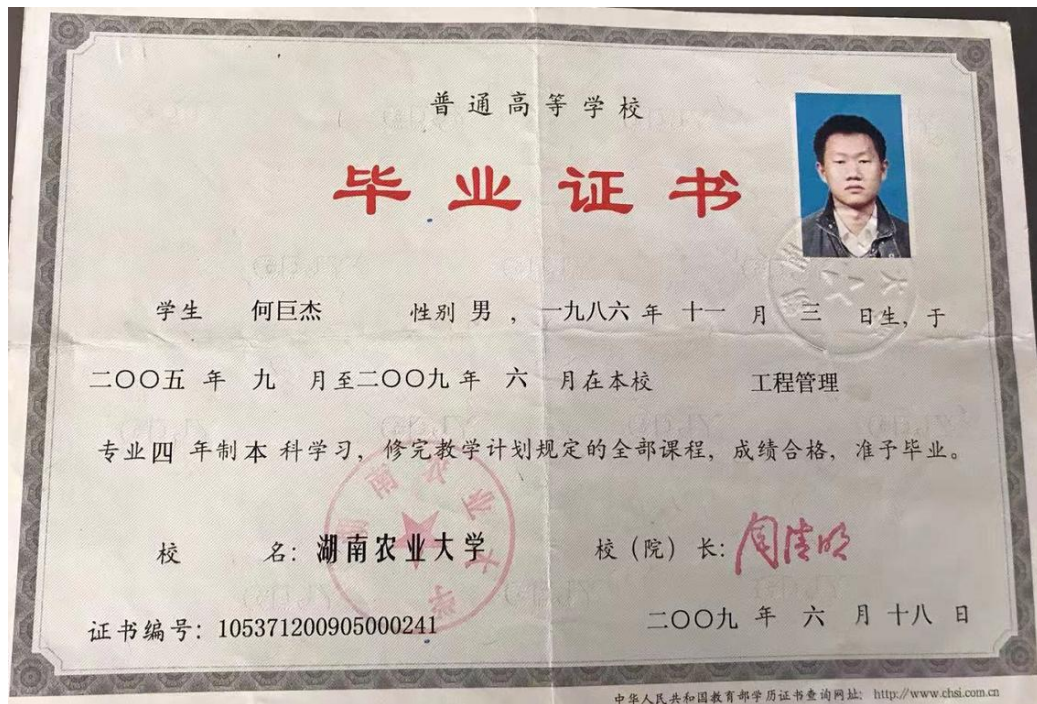 普通高等学校
毕业证书
学生 何巨杰 性别 男 ，一九八六 年 十一 月 三 日生，于
二〇〇五 年 九 月至二〇〇九 年 六 月在本校 工程管理
专业 四 年制 本 科学习，修完教学计划规定的全部课程，成绩合格，准予毕业。
校 名：湖南农业大学 校（院）长：周清明
湖南农业大学
证书编号：105371200905000241 二〇〇九 年 六 月 十八 日
中华人民共和国教育部学历证书查询网址：http://www.chsi.com.cn